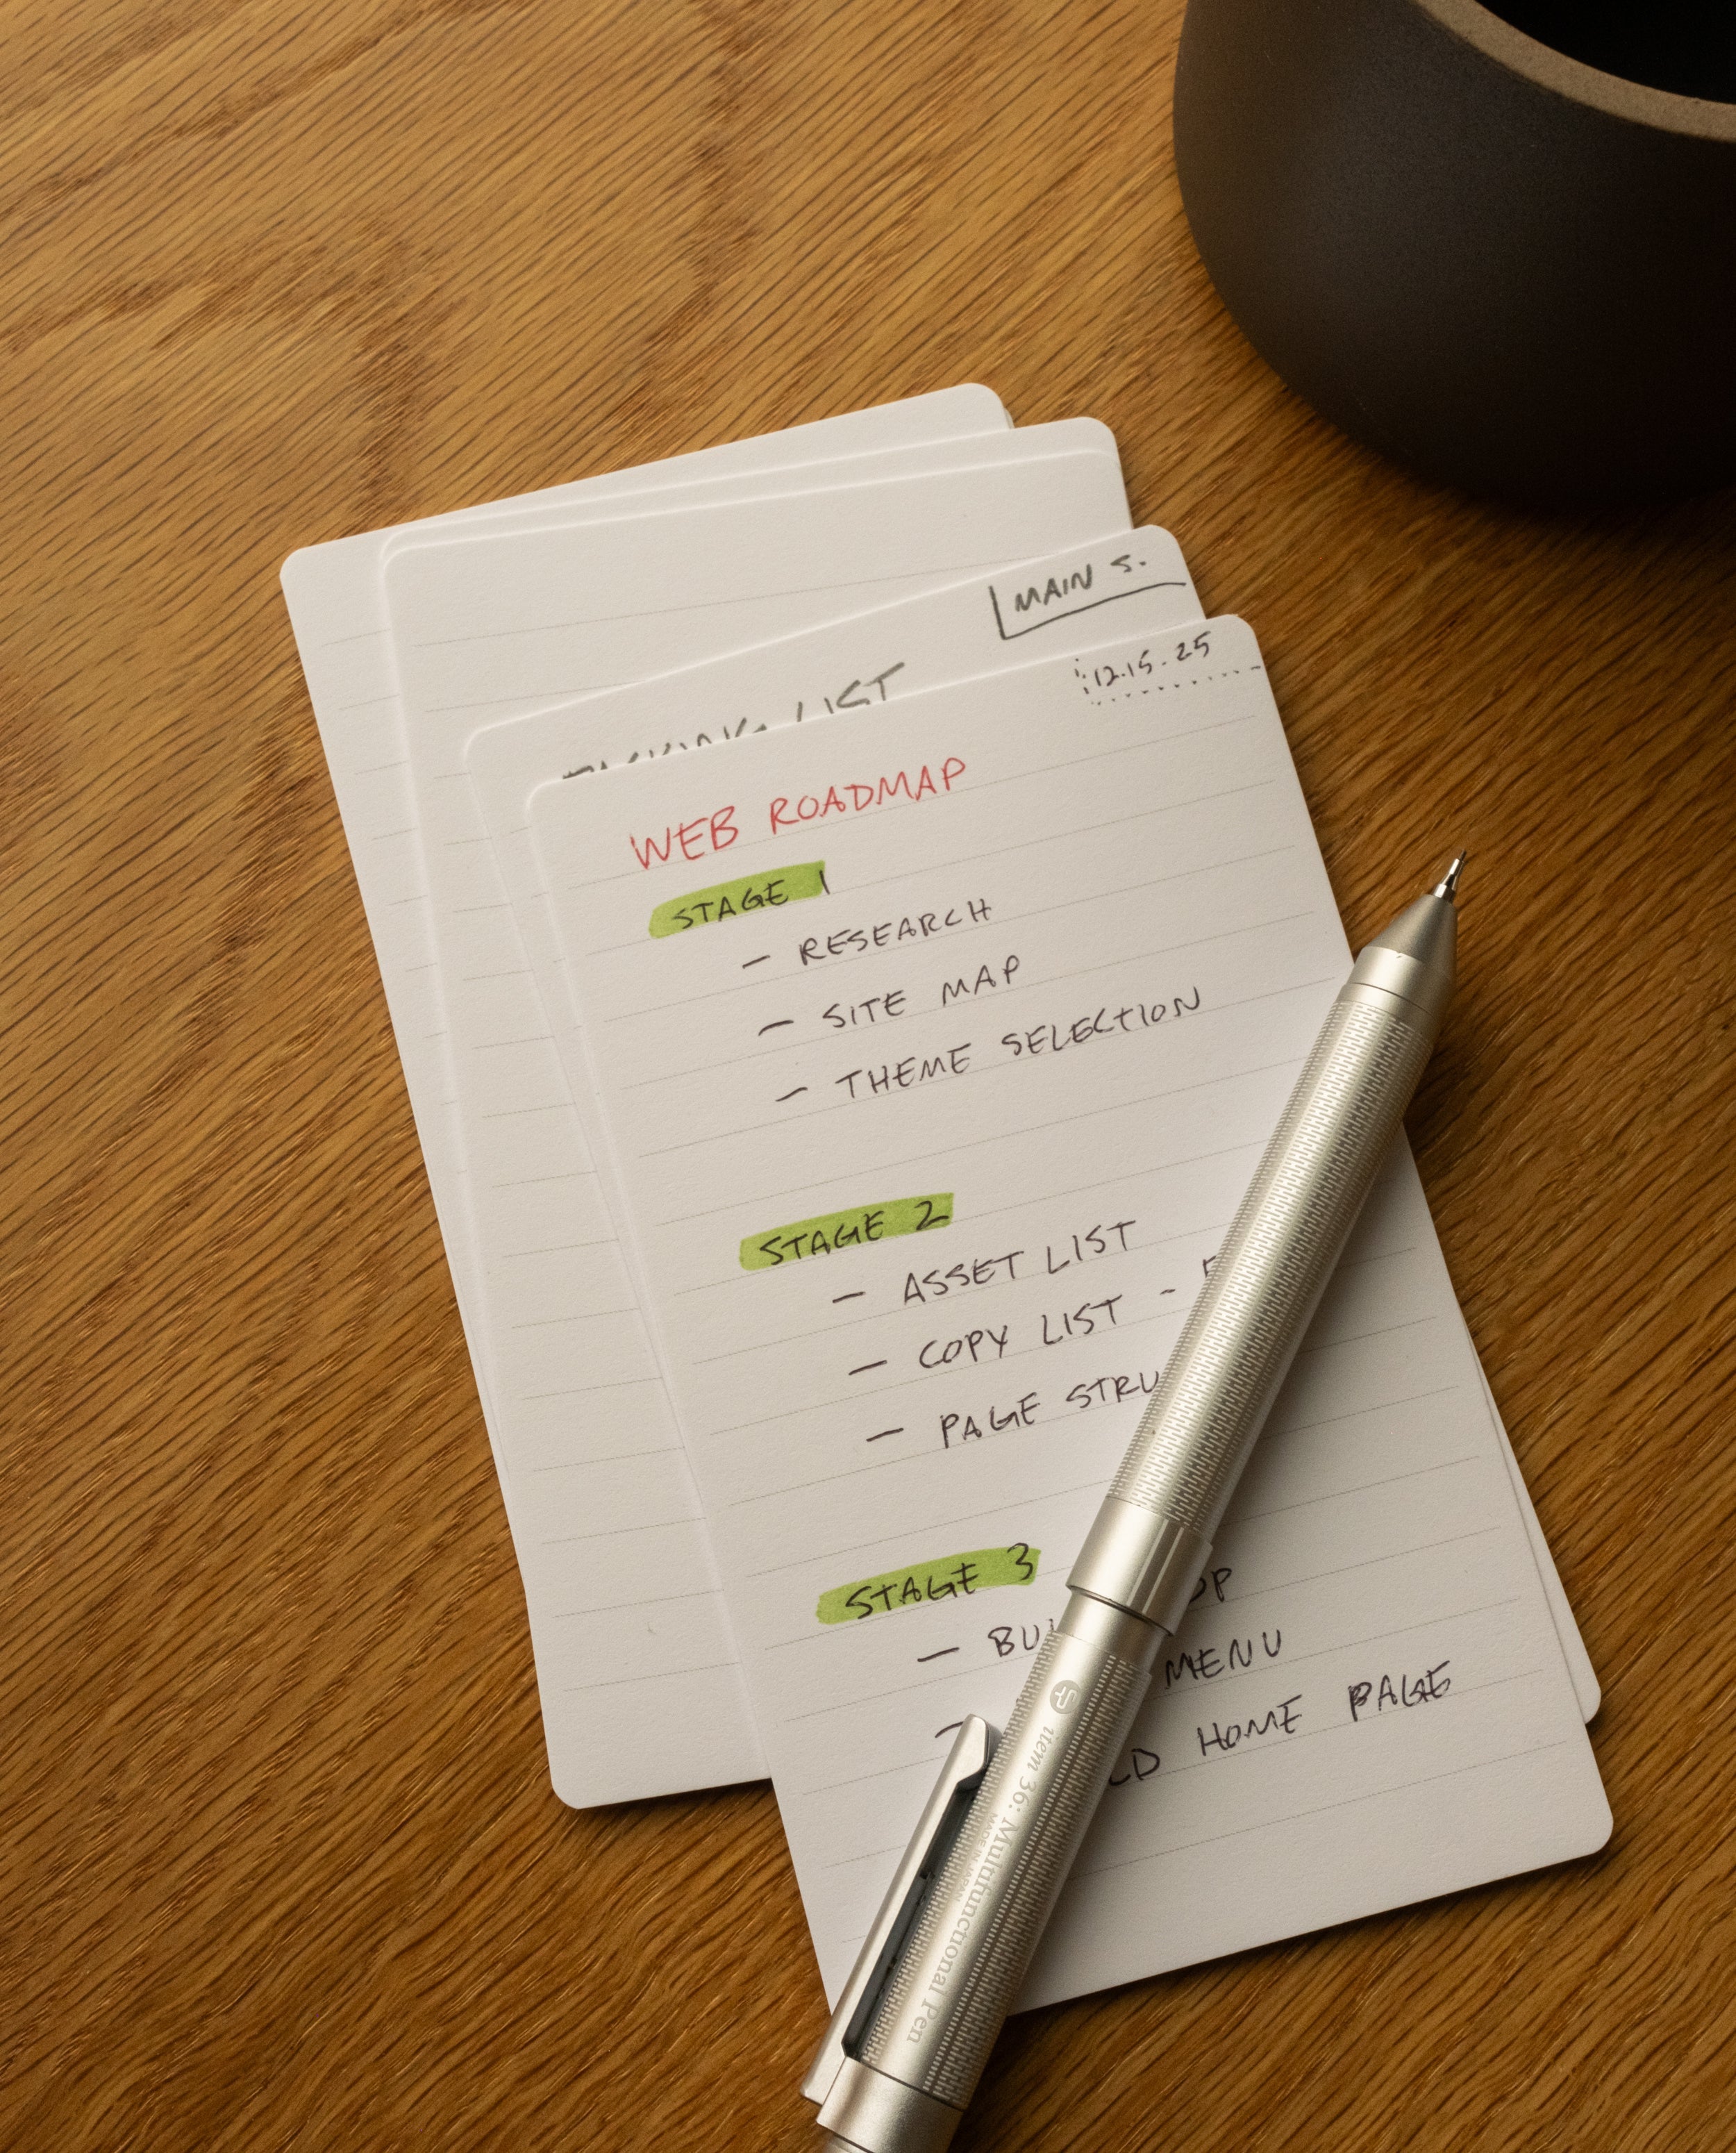 MAIN S.
LIST
12.15.25
WEB ROADMAP
STAGE 1
- RESEARCH
- SITE MAP
- THEME SELECTION
STAGE 2
- ASSET LIST
- COPY LIST -
- PAGE
STAGE 3
-
- MENU
HOME PAGE
item 36: Multifunctional Pen
MADE IN JAPAN